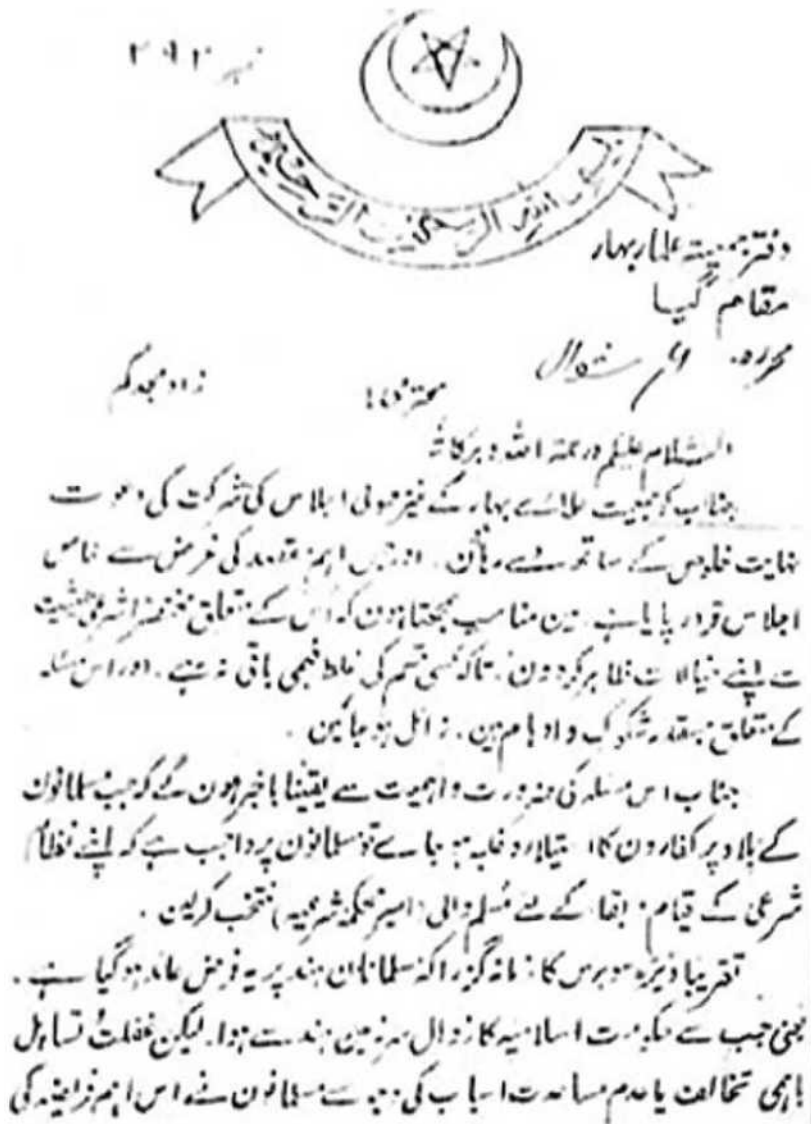 نمبر ۲۹۲
بسم اللہ الرحمن الرحیم
دفتر جمعیتہ علماء بہار
مقام گیا
محررہ شوال
محترمنا! زاد مجدکم
السلام علیکم ورحمۃ اللہ وبرکاتہ
جناب کو جمعیت علمائے بہار کے غیر معمولی اجلاس کی شرکت کی دعوت
نہایت خلوص کے ساتھ دے رہا ہوں۔ اور جس اہم مقصد کی غرض سے خاص
اجلاس قرار پایا ہے۔ مین مناسب سمجھتا ہون کہ اس کے متعلق مختصراً شرعی حیثیت
سے اپنے خیالات ظاہر کردون۔ تاکہ کسی قسم کی غلط فہمی باقی نہ رہے۔ اور اس مسئلہ
کے متعلق جسقدر شکوک و اوہام ہین۔ زائل ہو جائین۔
جناب اس مسئلہ کی ضرورت و اہمیت سے یقیناً باخبر ہون گے کہ جب مسلمانون
کے بلاد پر کفارون کا استیلاء و غلبہ ہو جاے تو مسلمانون پر واجب ہے کہ اپنے نظام
شرعی کے قیام و بقاء کے لئے مسلم والی (امیر محکمۂ شرعیہ) منتخب کرلین۔
تقریباً ڈیڑھ سو برس کا زمانہ گزرا کہ مسلمانان ہند پر یہ فرض عائد ہو گیا ہے۔
یعنی جب سے حکومت اسلامیہ کا زوال سرزمین ہند سے ہوا۔ لیکن غفلت و تساہل
باہمی تخالف یا عدم مساعدت اسباب کی وجہ سے مسلمانون نے اس اہم فریضہ کی